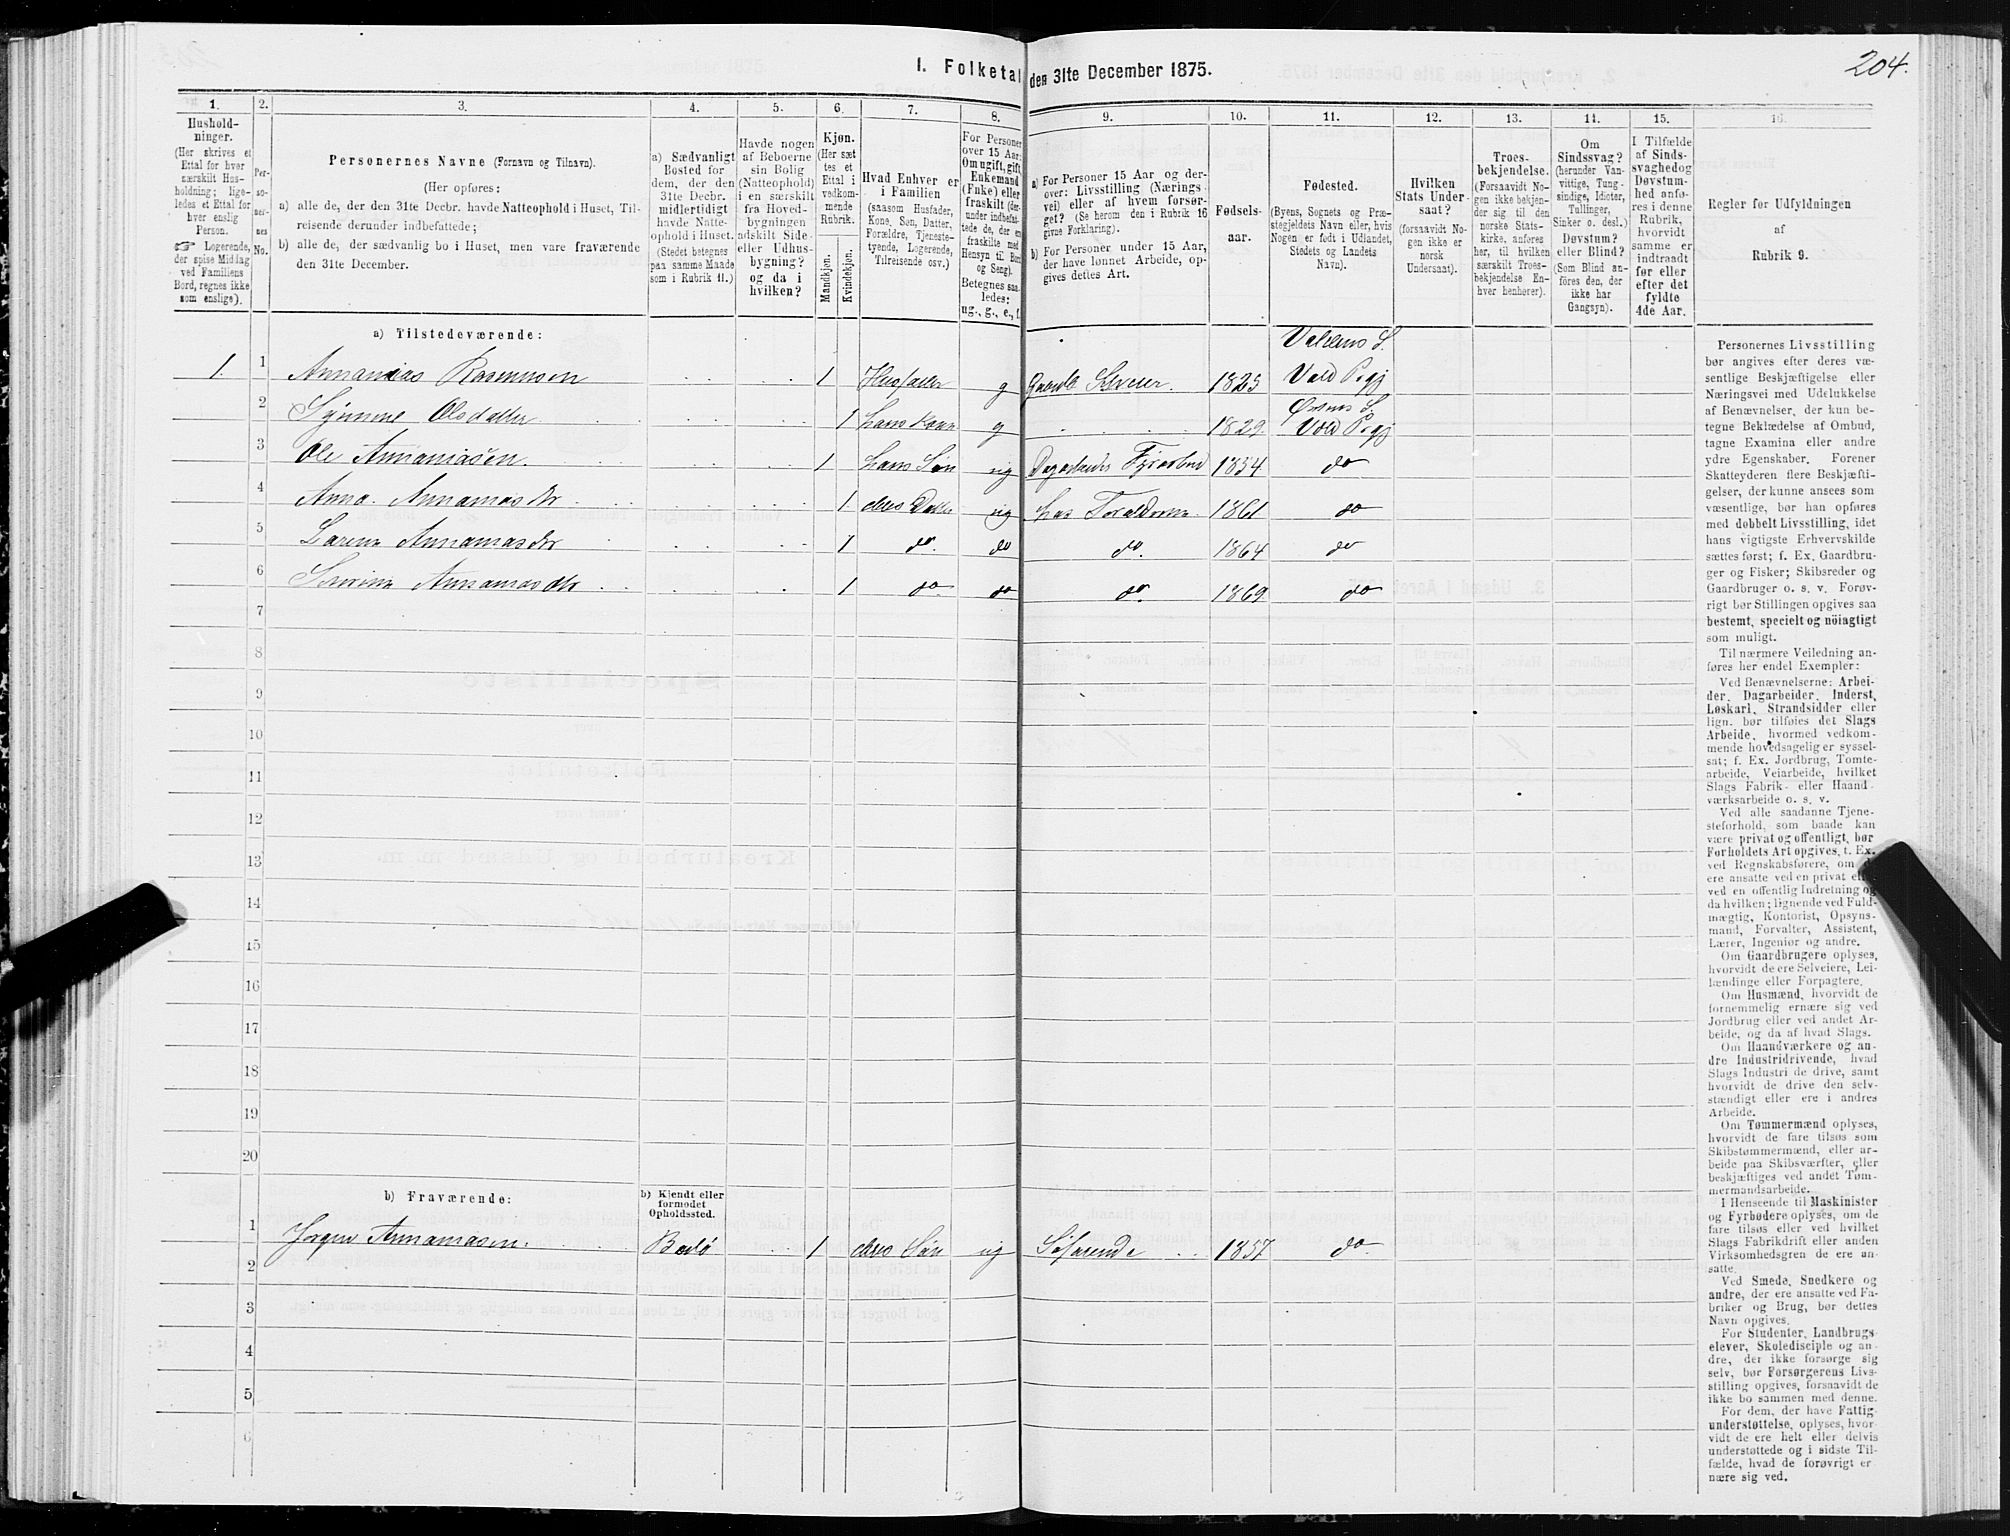 204.
I. Folketal den 31te December 1875.
1. 2. 3. 4. 5. 6. 7. 8. 9. 10. 11. 12. 13. 14. 15. 16.
Hushold-
ninger.
(Her skrives et
Ettal for hver
særskilt Hus-
holdning; lige-
ledes et Ettal for
hver enslig
Person.
☞ Logerende,
der spise Middag
ved Familiens
Bord, regnes ikke
som enslige).
Per-
so-
ner-
nes
No.
Personernes Navne (Fornavn og Tilnavn).
(Her opføres:
a) alle de, der den 31te Decbr. havde Natteophold i Huset, Til-
reisende derunder indbefattede;
b) alle de, der sædvanlig bo i Huset, men vare fraværende
den 31te December.
a) Sædvanligt
Bosted for
dem, der den
31te Decbr.
midlertidigt
havde Natte-
ophold i Huset.
(Stedet betegnes
paa samme Maade
som i Rubrik 11.)
Havde nogen
af Beboerne
sin Bolig
(Natteophold)
i en særskilt
fra Hoved-
bygningen
adskilt Side-
eller Udhus-
bygning?
og da i
hvilken?
Kjøn.
(Her sæt
tes et
Ettal i
vedkom-
mende
Rubrik.
Mandkjøn.
Kvindekjøn.
Hvad Enhver er
i Familien
(saasom Husfader,
Kone, Søn, Datter,
Forældre, Tjeneste-
tyende, Logerende,
Tilreisende osv.)
For Personer
over 15 Aar:
Om ugift, gift,
Enkemand
(Enke) eller
fraskilt (der-
under indbefat-
tede de, der er
fraskilte med
Hensyn til Bord
og Seng).
Betegnes saa-
ledes:
ug., g., e., f.
a) For Personer 15 Aar og der-
over: Livsstilling (Nærings-
vei) eller af hvem forsør-
get? (Se herom den i Rubrik 16
givne Forklaring).
b) For Personer under 15 Aar,
der have lønnet Arbeide, op-
gives dettes Art.
Fødsels-
aar.
Fødested.
(Byens, Sognets og Præ-
stegjeldets Navn eller, hvis
Nogen er født i Udlandet,
Stedets og Landets
Navn).
Hvilken
Stats Under-
saat?
(forsaavidt No-
gen ikke er
norsk
Undersaat).
Troes-
bekjendelse.
(Forsaavidt No-
gen ikke bekjen-
der sig til den
norske Stats-
kirke, anføres
her, til hvilken
særskilt Troes-
bekjendelse En-
hver henhører).
Om
Sindssvag?
(herunder Van-
vittige, Tung-
sindige, Idioter,
Tullinger,
Sinker o. desl.)
Døvstum?
eller Blind?
(Som Blind an-
føres den, der
ikke har
Gangsyn).
I Tilfælde
af Sinds-
svaghed og
Døvstum-
hed anfø-
res i denne
Rubrik,
hvorvidt
samme er
indtraadt
før eller
efter det
fyldte
4de Aar.
Regler for Udfyldningen
af
Rubrik 9.
a) Tilstedeværende:
Valdens S.
1. 1 Annanias Rasmusen 1 Husfader g Gaardb Selveier. 1825 Vold Pgj
Østnes S
2 Synneve Olsdatter 1 hans Kone g 1829 Vold Pgj
3 Ole Annaniasen. 1 hans Søn ug 1854 do
4 Anna Annaniasdtr 1 deres Datter ug hos Forældrene 1861 do
5 Larena Annaniasdtr 1 do. do do. 1864 do
6 Annaniasdtr 1 do. do do. 1869 do
7
8
9
10
11
12
13
14
15
16
17
18
19
20
b) Fraværende:
b) Kjendt eller
formodet
Opholdssted.
1 Jørgen Annaniasen. 1 deres Søn ug Søfarende 1857 do.
2
3
4
5
6
Personernes Livsstilling
bør angives efter deres væ-
sentlige Beskjæftigelse eller
Næringsvei med Udelukkelse
af Benævnelser, der kun be-
tegne Beklædelse af Ombud,
tagne Examina eller andre
ydre Egenskaber. Forener
Skatteyderen flere Beskjæfti-
gelser, der kunne ansees som
væsentlige, bør han opføres
med dobbelt Livsstilling, idet
hans vigtigste Erhvervskilde
sættes først; f. Ex. Gaardbru-
ger og Fisker; Skibsreder og
Gaardbruger o. s. v. Forøv-
rigt bør Stillingen opgives saa
bestemt, specielt og nöiagtigt
som muligt.
Til nærmere Veiledning an-
føres her endel Exempler:
Ved Benævnelserne: Arbei-
der, Dagarbeider, Inderst,
Løskarl, Strandsidder eller
lign. bør tilføies det Slags
Arbeide, hvormed vedkom-
mende hovedsagelig er syssel-
sat; f. Ex. Jordbrug, Tomte-
arbeide, Veiarbeide, hvilket
Slags Fabrik- eller Haand-
værksarbeide o. s. v.
Ved alle saadanne Tjene-
steforhold, som baade kan
være privat og offentligt, bør
Forholdets Art opgives, t. Ex.
ved Regnskabsførere, om de
ere ansatte ved en privat eller
ved en offentlig Indretning og
da hvilken; lignende ved Fuld-
mægtig, Kontorist, Opsyns-
mand, Forvalter, Assistent,
Lærer, Ingeniør og andre.
Om Gaardbrugere oplyses,
hvorvidt de ere Selveiere, Lei-
lændinge eller Forpagtere.
Om Husmænd, hvorvidt de
fornemmelig ernære sig ved
Jordbrug eller ved andet Ar-
beide, og da af hvad Slags.
Om Haandværkere og an-
dre Industridrivende, hvad
Slags Industri de drive, samt
hvorvidt de drive den selv-
stændigt eller ere i andres
Arbeide.
Om Tømmermænd oplyses,
hvorvidt de fare tilsøs som
Skibstømmermænd, eller ar-
beide paa Skibsværfter, eller
beskjæftiges ved andet Tøm-
mermandsarbeide.
I Henseende til Maskinister
og Fyrbødere oplyses, om de
fare tilsøs eller ved hvilket
Slags Fabrikdrift eller anden
Virksomhedsgren de ere an-
satte.
Ved Smede, Snedkere og
andre, der ere ansatte ved Fa-
briker og Brug, bør dettes
Navn opgives.
For Studenter, Landbrugs-
elever, Skoledisciple og an-
dre, der ikke forsørge sig
selv, bør Forsørgerens Livs-
stilling opgives, forsaavidt de
ikke bo sammen med denne.
For dem, der have Fattig-
understøttelse, oplyses, hvor-
vidt de ere helt eller delvis
understøttede og i sidste Til-
fælde, hvad de forøvrigt er-
nære sig ved.